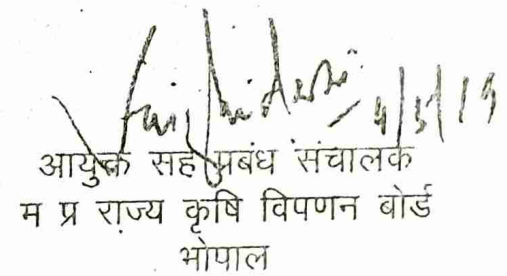 4/3/19
आयुक्त सह प्रबंध संचालक
म प्र राज्य कृषि विपणन बोर्ड
भोपाल